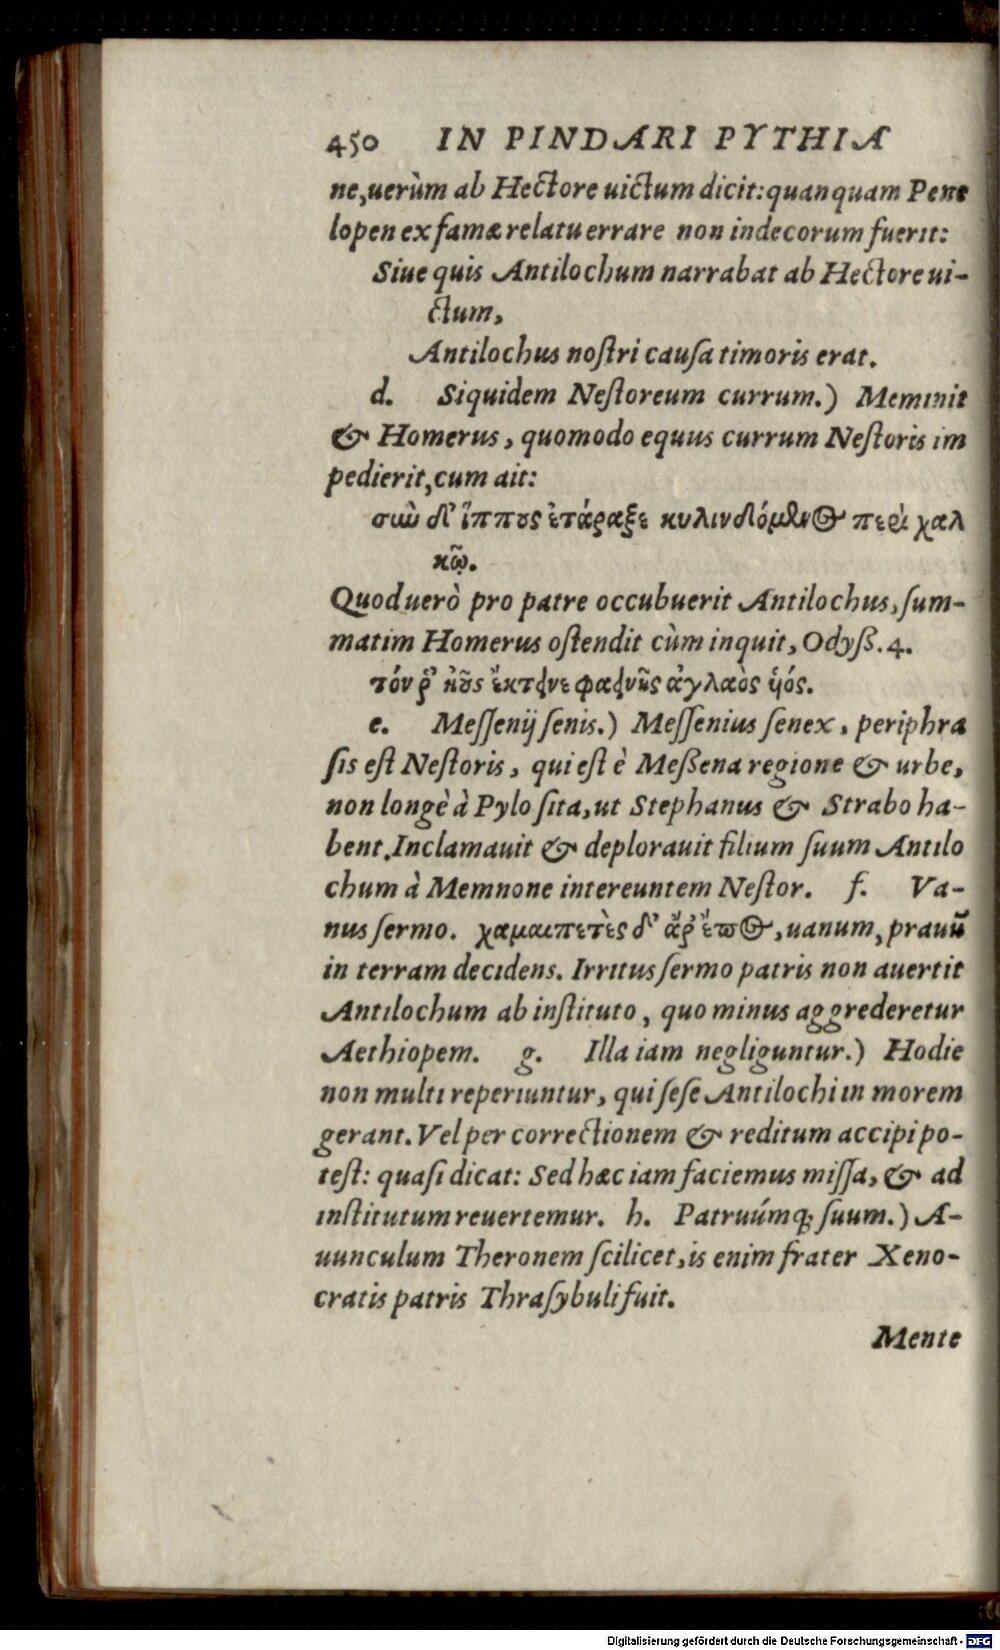 450 IN PINDARI PYTHIA
ne,uerùm ab Hectore uictum dicit:quanquam Pene
lopen ex famæ relatu errare non indecorum fuerit:
Siue quis Antilochum narrabat ab Hectore ui-
ctum,
Antilochus noſtri cauſa timoris erat.
d. Siquidem Neſtoreum currum.) Meminit
& Homerus, quomodo equus currum Neſtoris im
pedierit,cum ait:
σὺν δ' ἵππους ἐτάραξε κυλινδόμενος περὶ χαλ
κῷ.
Quod uerò pro patre occubuerit Antilochus, ſum-
matim Homerus oſtendit cùm inquit, Odyſß. 4.
τόν ῥ' ἠοῦς ἔκτεινε φαεινῆς ἀγλαὸς υἱός.
e. Meſſenij ſenis.) Meſſenius ſenex, periphra
ſis eſt Neſtoris, qui eſt è Meßena regione & urbe,
non longè à Pylo ſita, ut Stephanus & Strabo ha-
bent. Inclamauit & deplorauit filium ſuum Antilo
chum à Memnone intereuntem Neſtor. f. Va-
nus ſermo. χαμαιπετὲς δ' ἄρ' ἔπος, uanum, prauũ
in terram decidens. Irritus ſermo patris non auertit
Antilochum ab inſtituto, quo minus aggrederetur
Aethiopem. g. Illa iam negliguntur.) Hodie
non multi reperiuntur, qui ſeſe Antilochi in morem
gerant. Vel per correctionem & reditum accipi po-
teſt: quaſi dicat: Sed hæc iam faciemus miſſa, & ad
inſtitutum reuertemur. h. Patruúmq; ſuum.) A-
uunculum Theronem ſcilicet, is enim frater Xeno-
cratis patris Thraſybuli fuit.
Mente
Digitalisierung gefördert durch die Deutsche Forschungsgemeinschaft - DFG